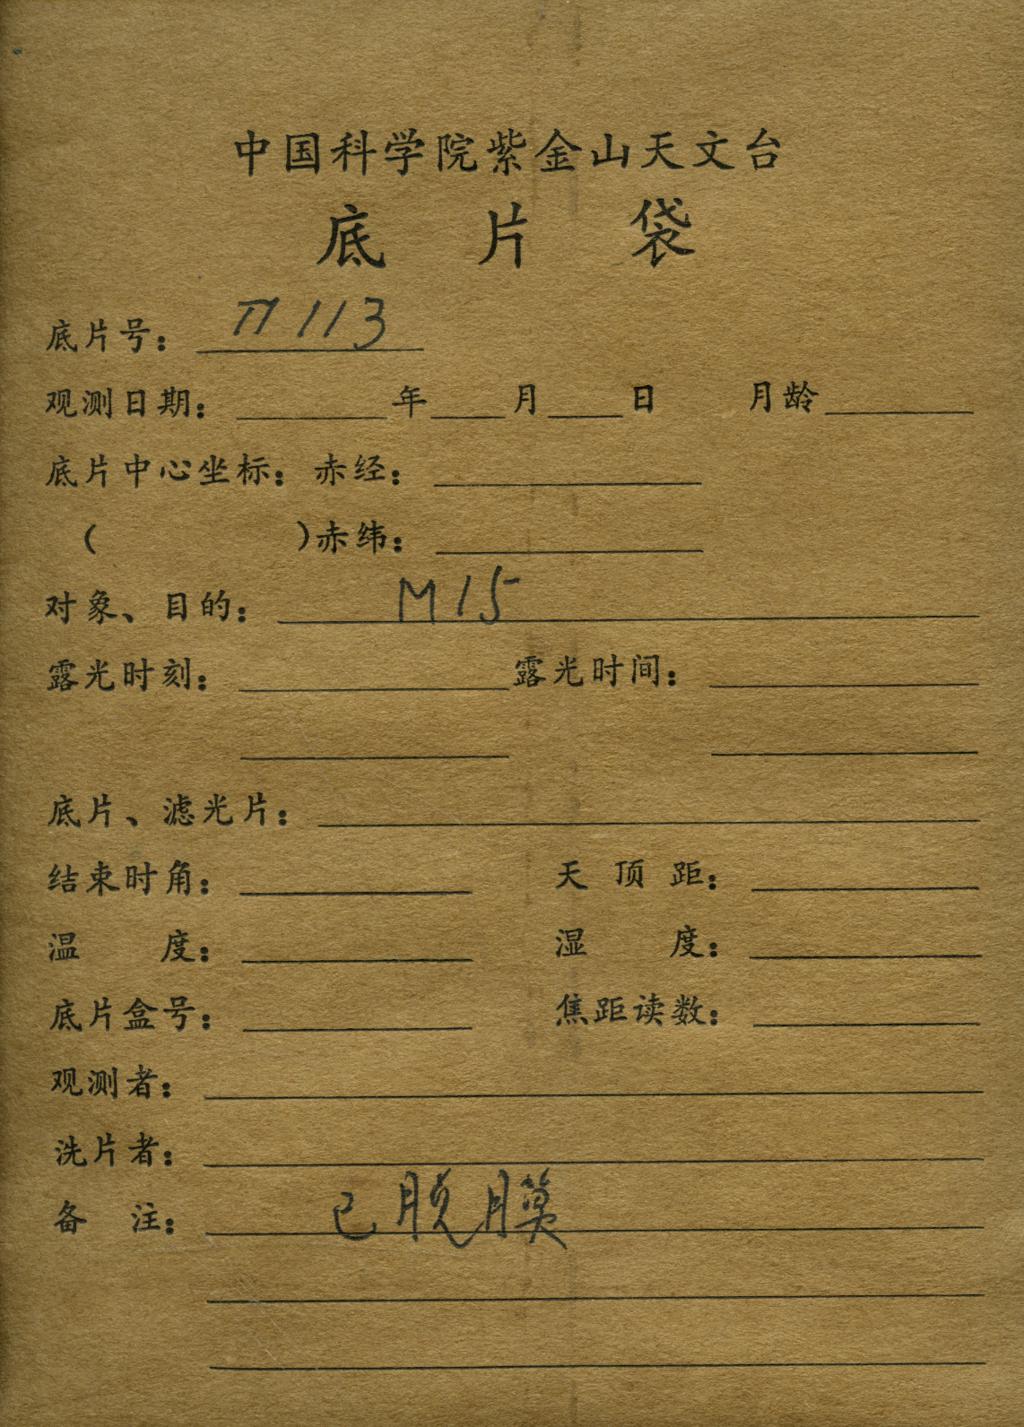 中国科学院紫金山天文台
底片袋
底片号：П113
观测日期：年月日 月龄
底片中心坐标：赤经：
（ ）赤纬：
对象、目的：M15
露光时刻： 露光时间：
底片、滤光片：
结束时角： 天顶距：
温度： 湿度：
底片盒号： 焦距读数：
观测者：
洗片者：
备注：已脱膜